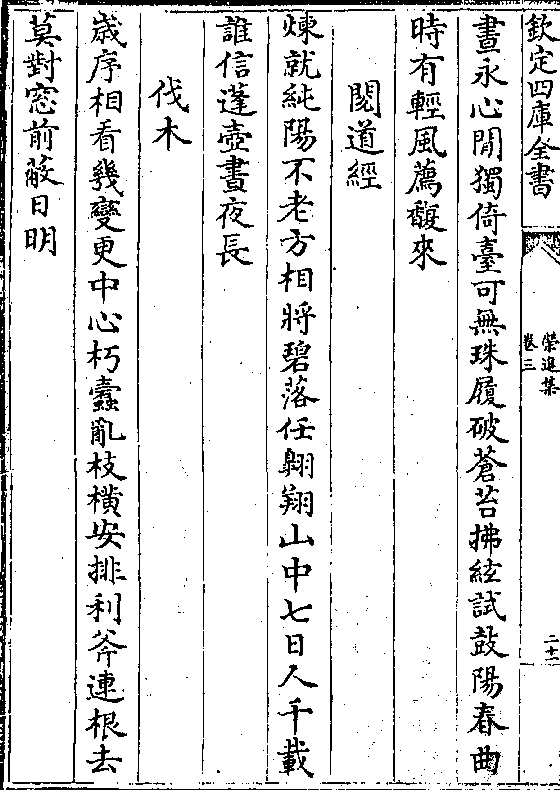 欽定四庫全書
榮進集
卷三
二十
晝永心閒獨倚臺可無珠履破蒼苔拂絃試鼓陽春曲
時有輕風薦馥來
閱道經
煉就純陽不老方相將碧落任翺翔山中七日人千載
誰信蓬壺晝夜長
伐木
歲序相看幾變更中心朽蠹亂枝橫安排利斧連根去
莫對窓前蔽日明